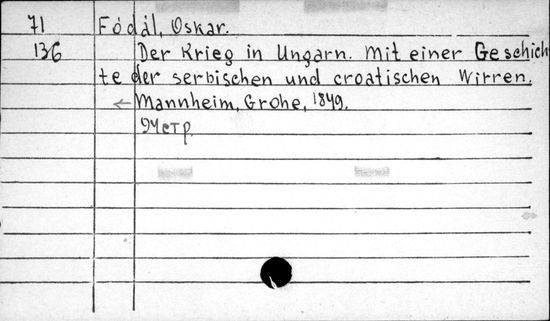 71 Fódál, Oskar.
136 Der Krieg in Ungarn. Mit einer Geschich-
te der serbischen und croatischen Wirren.
← Mannheim, Grohe, 1849.
94стр.